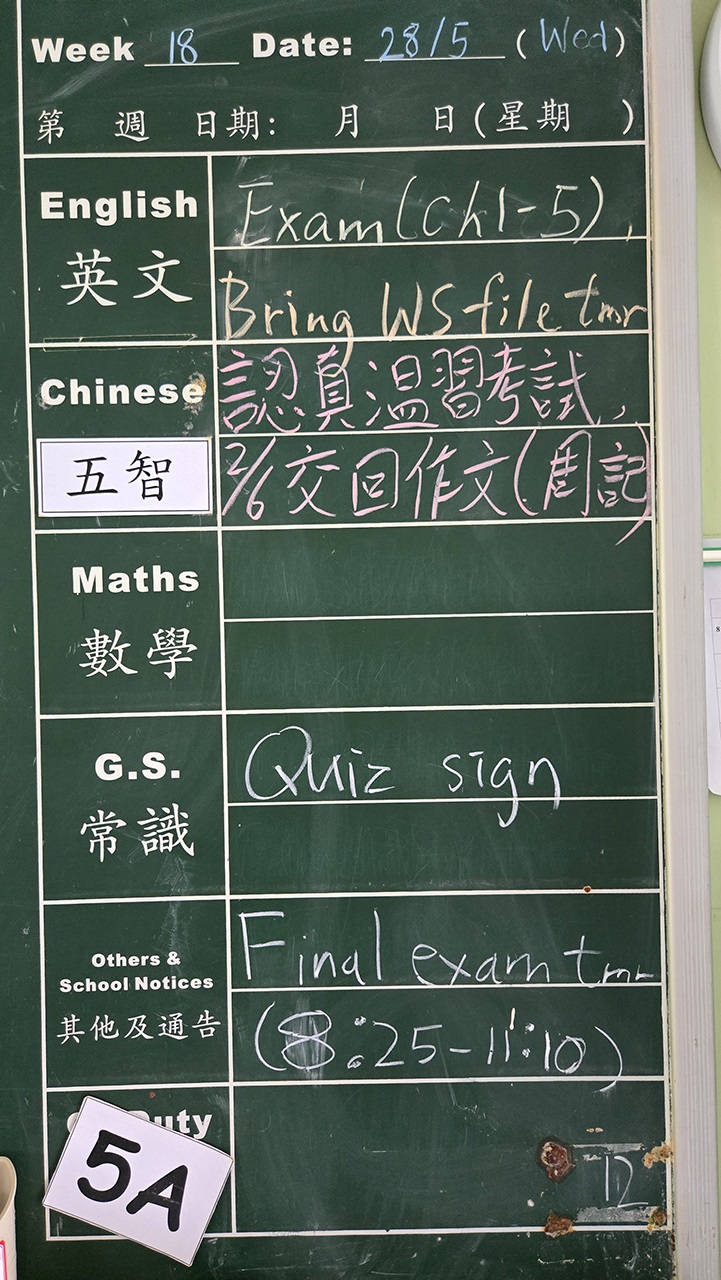 Week 18 Date: 28/5 (Wed)
第 週 日期: 月 日(星期 )
English Exam(Ch1-5),
英文 Bring WS file tmr
Chinese 認真溫習考試,
五智 2/6交回作文(周記)
Maths
數學
G.S. Quiz sign
常識
Others &
School Notices
Final exam tmr
其他及通告 (8:25-11:10)
uty
5A
12